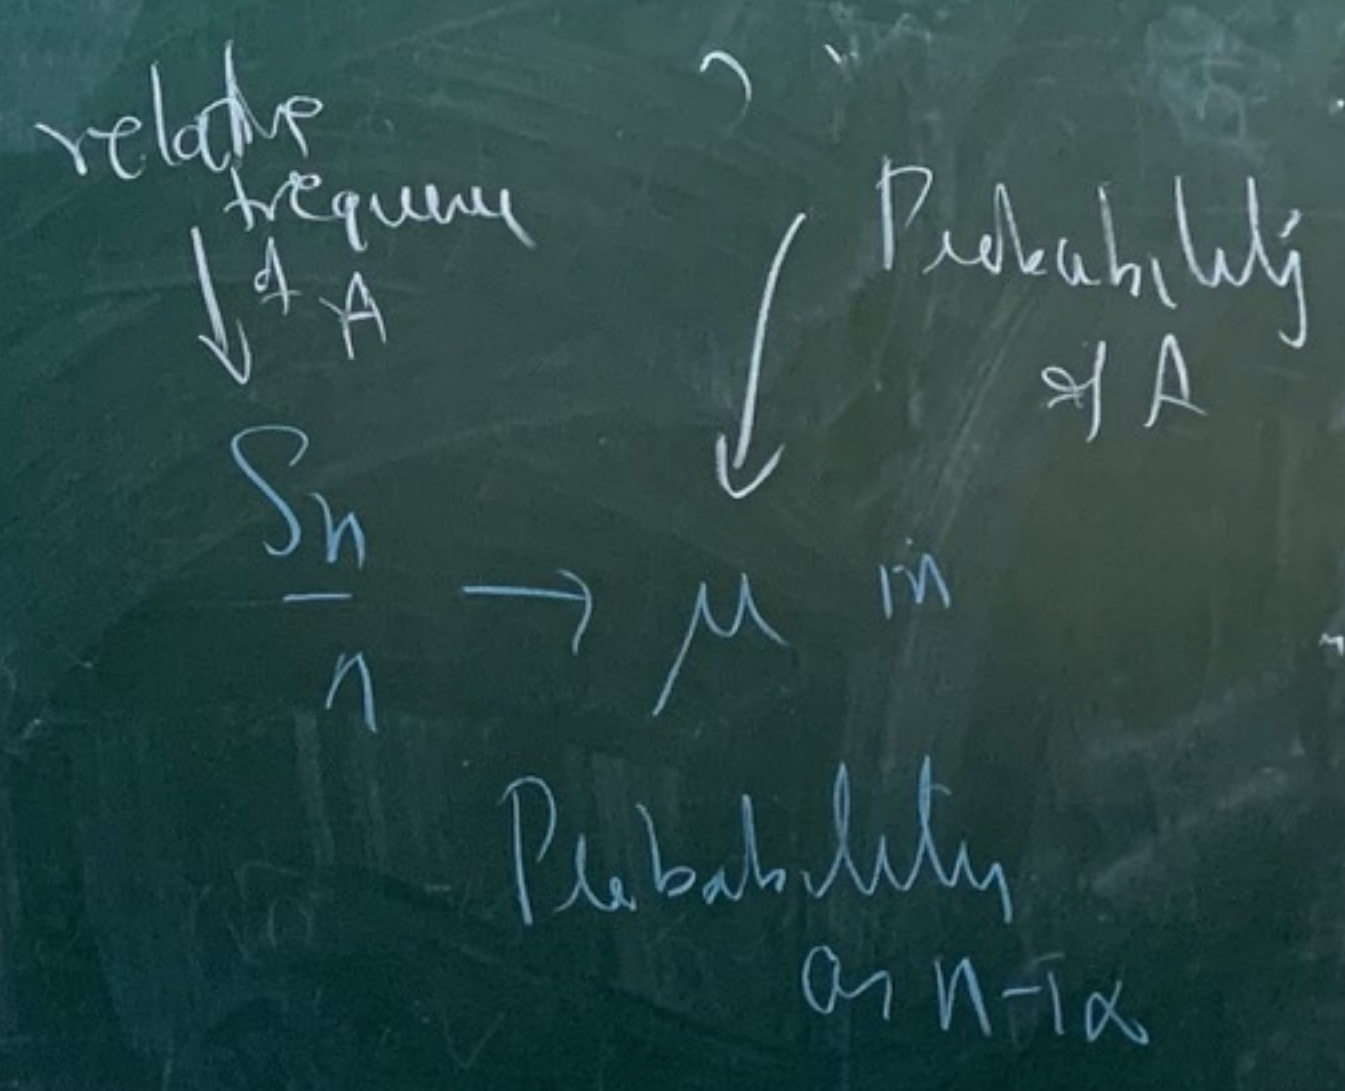 relative
frequency
of
A
Probability
of A
Sn
n
→ μ in
Probability
as n→∞